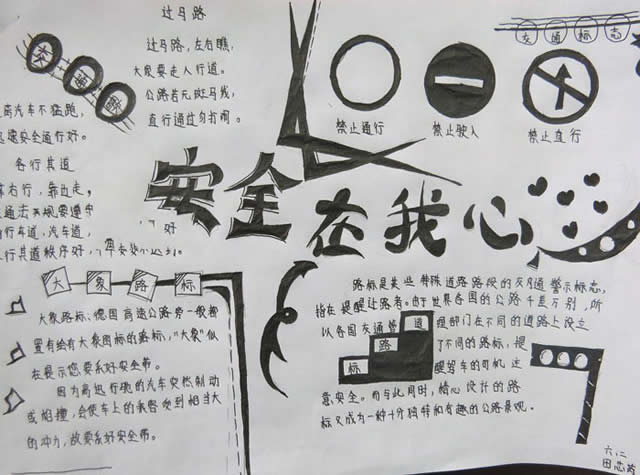 交通歌
高汽车不猛跑，
速安全通行好。
各行其道
右行，靠边走，
交通法规要遵守
自行车道，汽车道，
行其道秩序好，
好
过马路
过马路，左右瞧，
大家要走人行道。
公路若无斑马线，
直行通过勿打闹。
交通标志
禁止通行
禁止驶入
禁止直行
安全在我心
大象路标
大象路标：德国高速公路旁一般都
置有绘有大象图标的路标，"大象"似
在提示您要系好安全带。
因为高速行驶的汽车突然制动
或相撞，会使车上的乘客受到相当大
的冲力，故要系好安全带。
路标
路标是某些特殊道路路段的交通警示标志，
旨在提醒过路者。由于世界各国的公路千差万别，所
以各国交通管道理部门在不同的道路上设立
了不同的路标，提
醒驾车的司机注
意安全。而与此同时，精心设计的路
标又成为一种十分独特和有趣的公路景观。
六、二
田芯